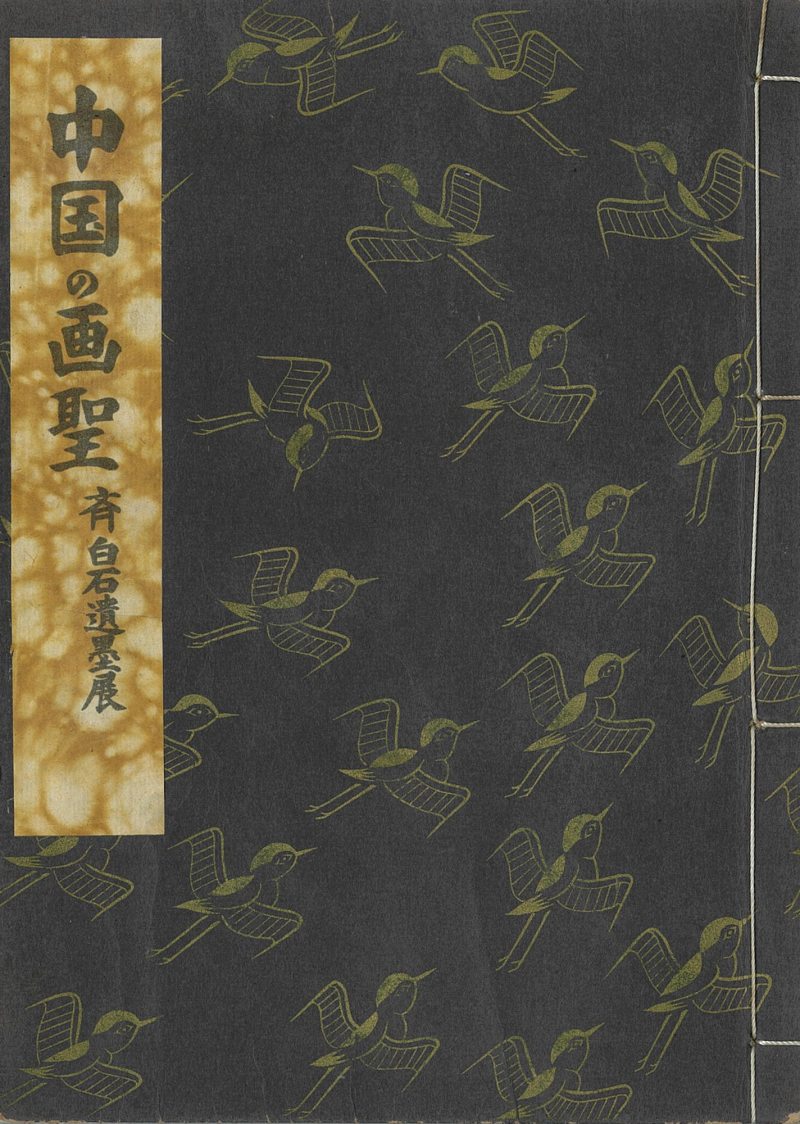 中国の画聖 斉白石遺墨展